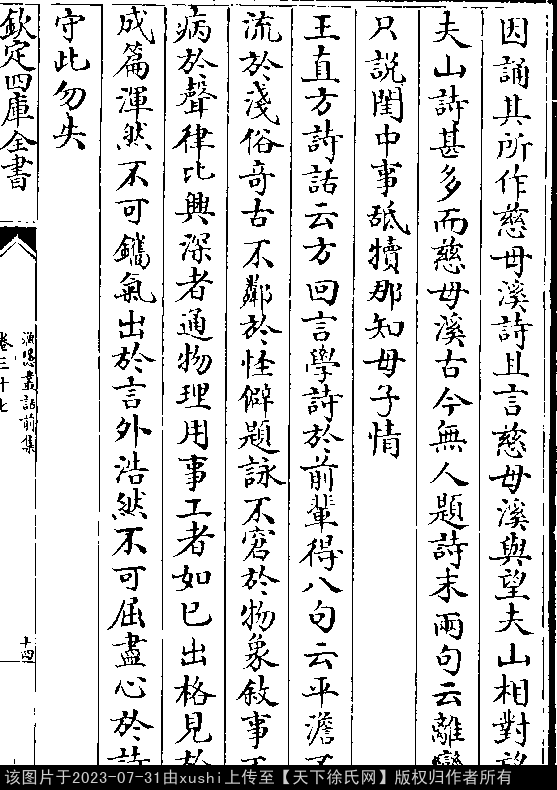 因誦其所作慈母溪詩且言慈母溪與望夫山相對望
夫山詩甚多而慈母溪古今無人題詩末兩句云離鸞
只說閨中事舐犢那知母子情
王直方詩話云方回言學詩於前輩得八句云平澹不
流於淺俗奇古不鄰於怪僻題詠不窘於物象敘事不
病於聲律比興深者通物理用事工者如已出格見於
成篇渾然不可鐫氣出於言外浩然不可屈盡心於詩
守此勿失
欽定四庫全書
漁隱叢話前集
卷三十七
十四
该图片于2023-07-31由xushi上传至【天下徐氏网】版权归作者所有